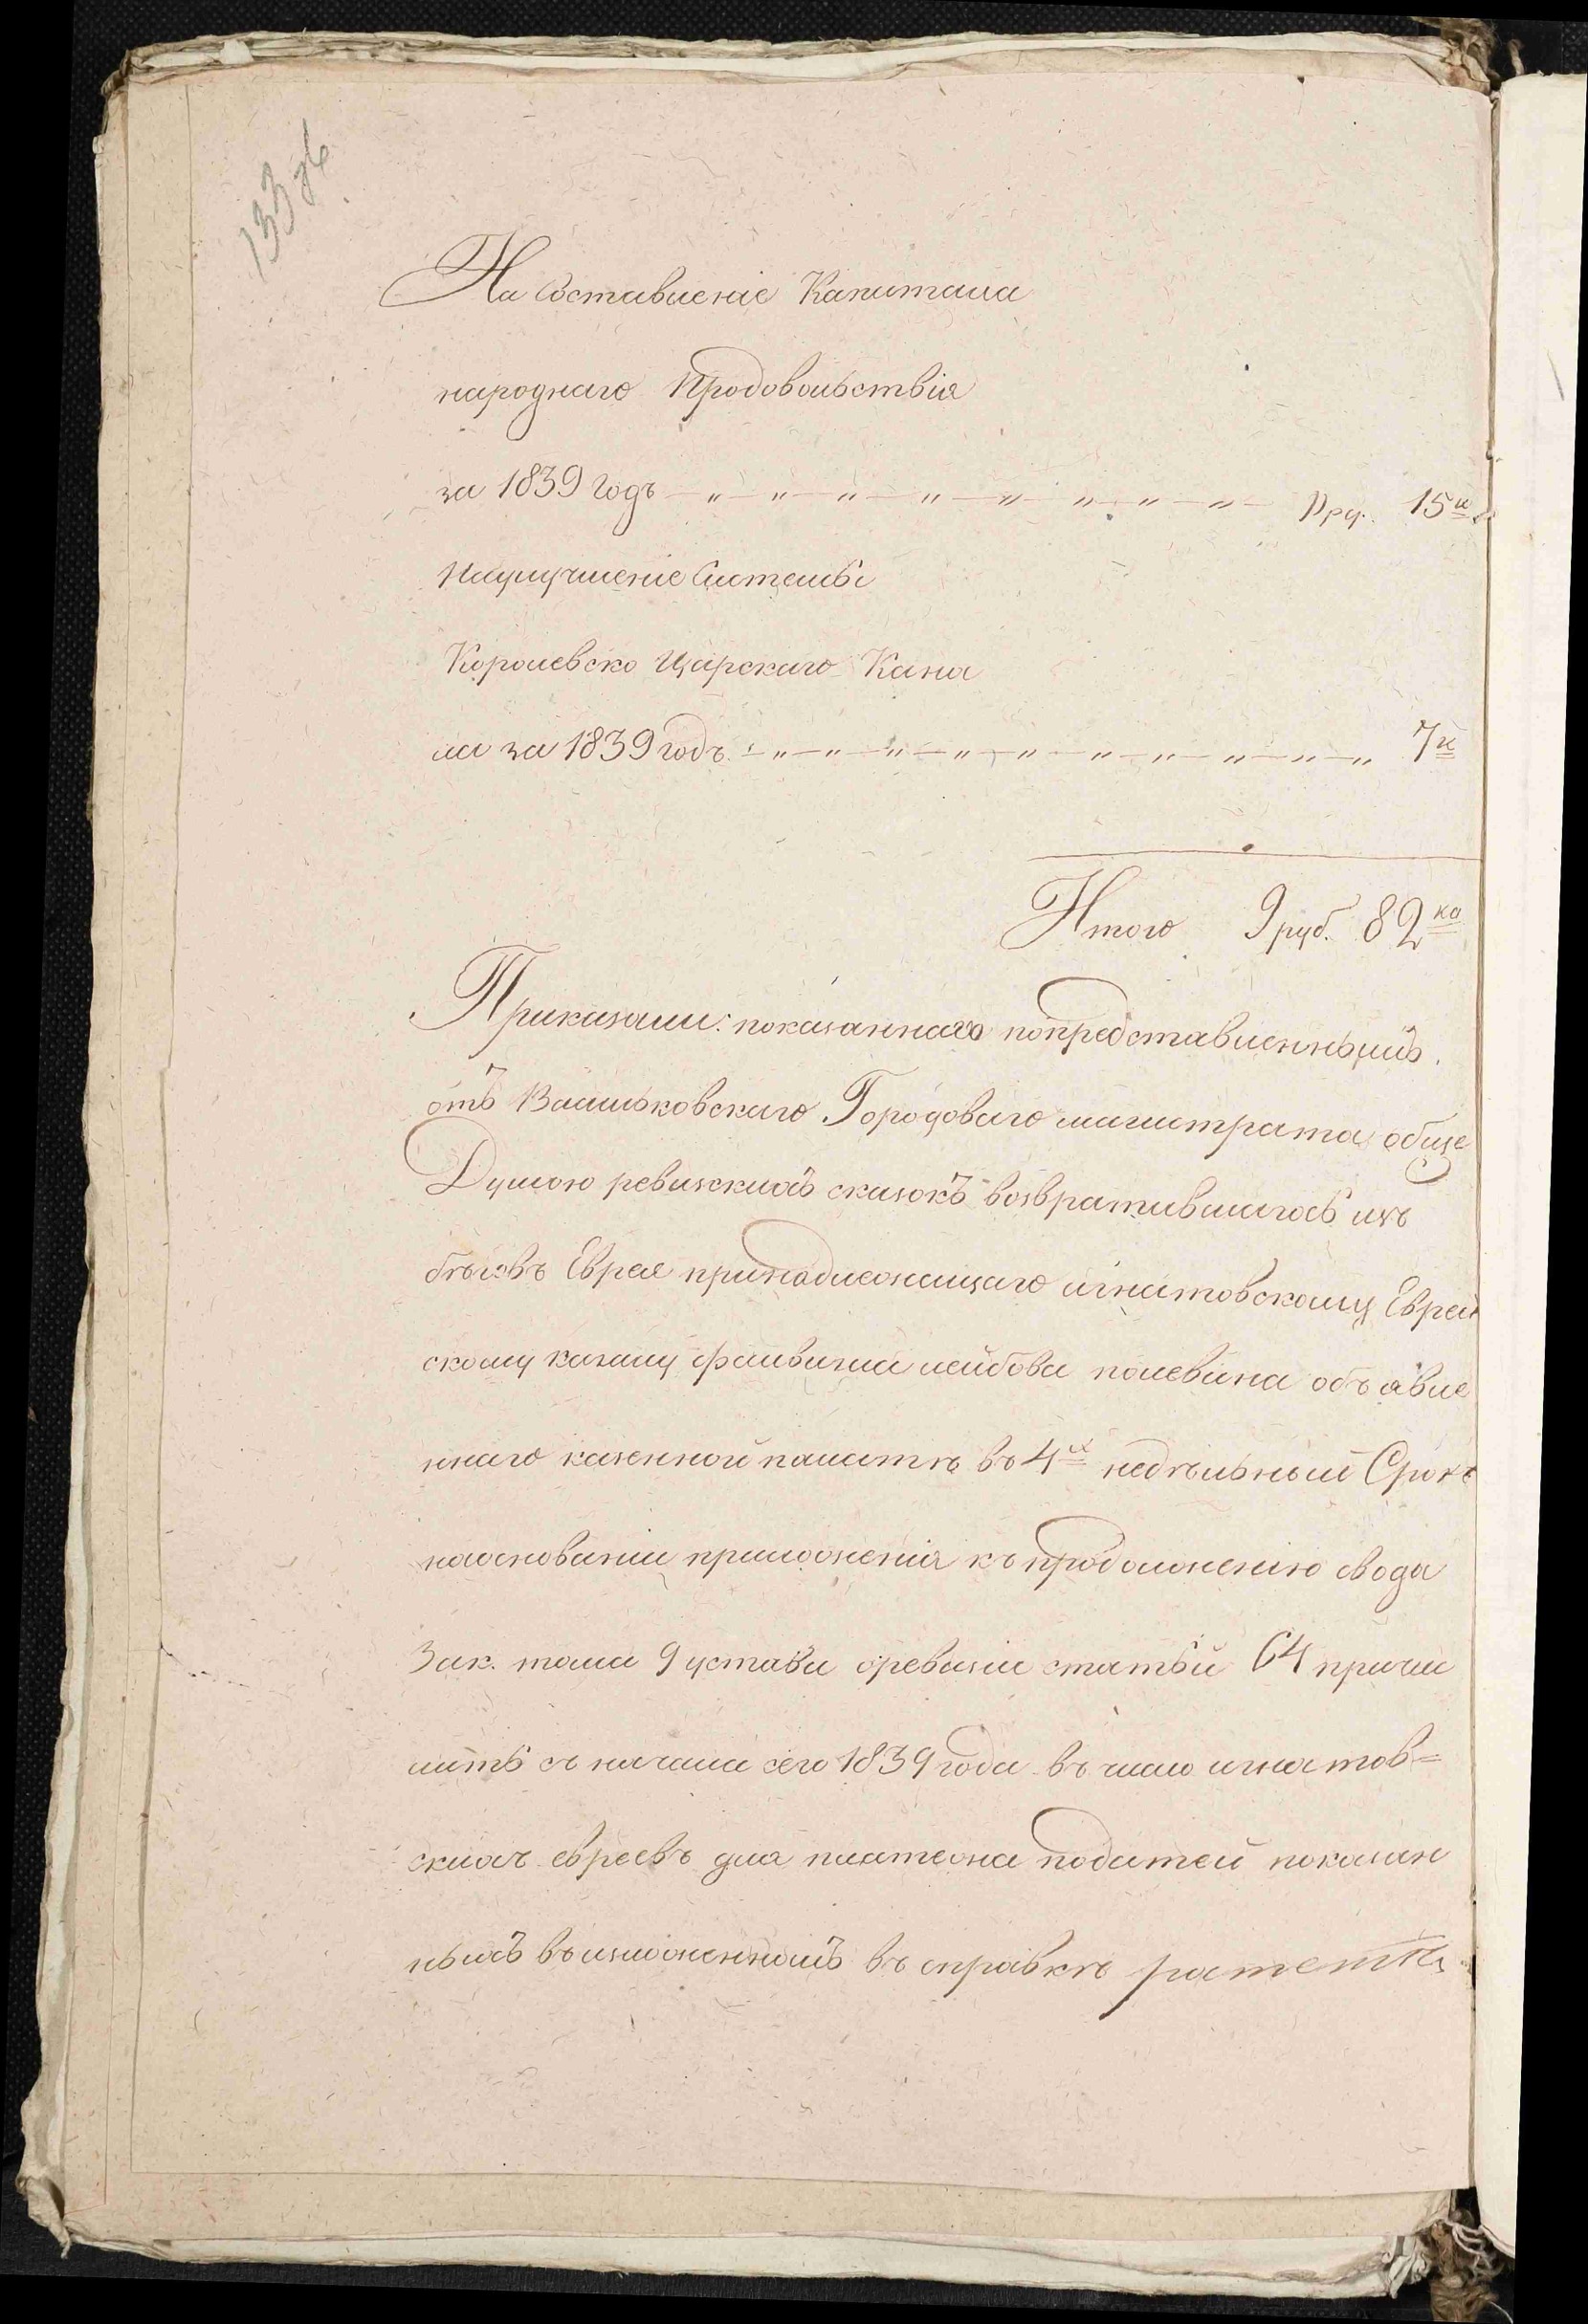 133 об.
На Составленіе Капитала
народнаго Продовольствія
за 1839 годъ — „ — „ — „ — „ — „ — „ — „ — „ — 15 к
Наулучшеніе Системы
Королевско Царскаго Кана
ла за 1839 годъ — „ — „ — „ — „ — „ — „ — „ — „ — „ — „ 7 к
Итого 9 руб. 82 ко
Приказали: показаннаго попредставленнымъ
отъ Васильковскаго Городоваго магистрата обще
Думою ревизскихъ сказокъ возвратившагось изъ
бѣговъ Еврея принадлежащаго игнатовскому Еврей
скому кагалу файвиша лейбова полевина объявле
ннаго казенной палатѣ въ 4х недѣльный Срокъ
наоснованіи приложенія къ продолженію свода
Зак. тома 9 устава оревизіи статьи 64 причи
лить съ начала сего 1839 года въ число игнатов=
скихъ евреевъ для платежа податей показан
ныхъ въизложенномъ въ справкѣ